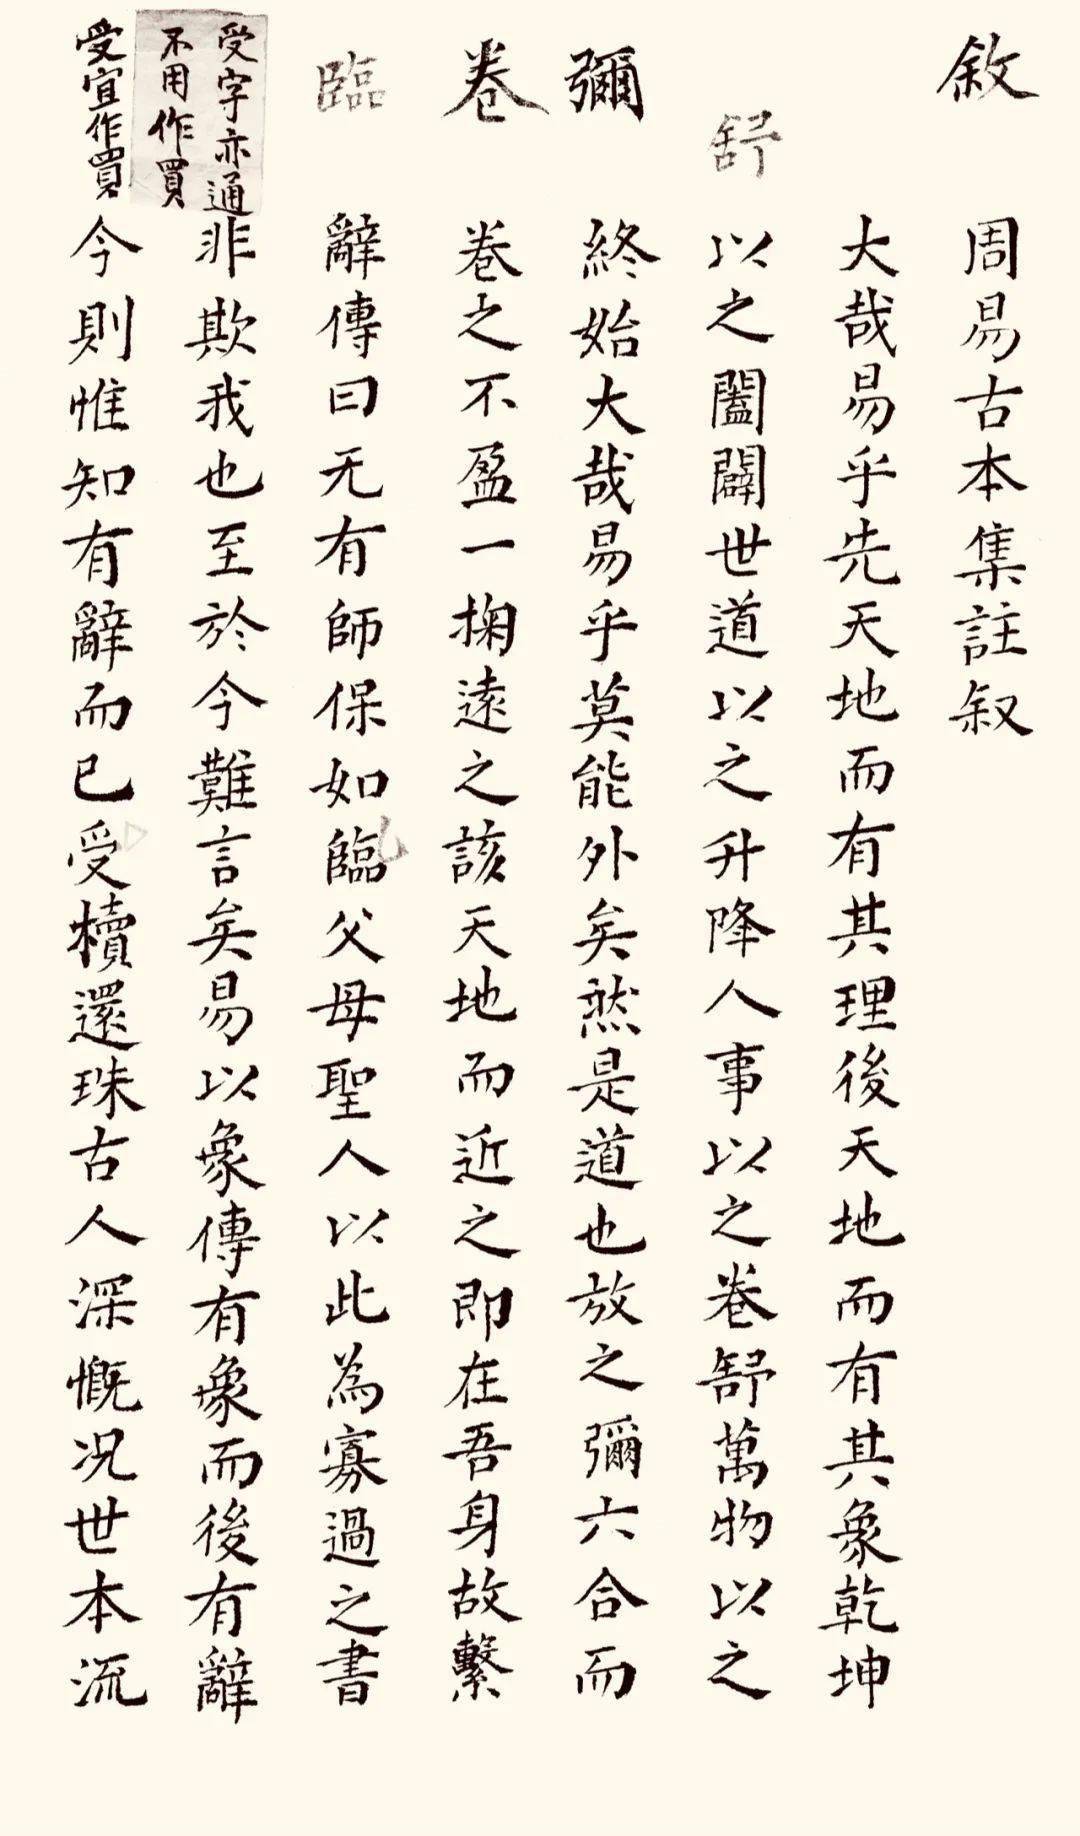 敘
周易古本集註叙
大哉易乎先天地而有其理後天地而有其象乾坤
舒
以之闔闢世道以之升降人事以之卷舒萬物以之
彌
終始大哉易乎莫能外矣然是道也放之彌六合而
卷
卷之不盈一掬遠之該天地而近之即在吾身故繫
臨
辭傳曰无有師保如臨父母聖人以此為寡過之書
受字亦通
不用作買
非欺我也至於今難言矣易以象傳有象而後有辭
受宜作買
今則惟知有辭而已受櫝還珠古人深慨况世本流